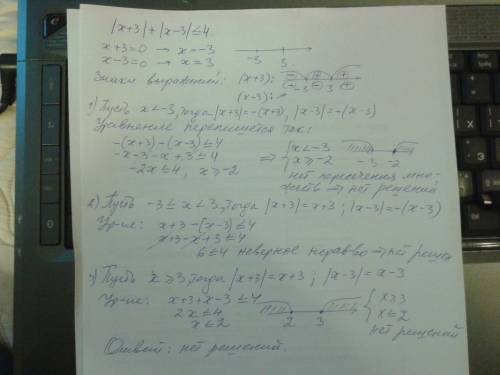 |x+3|+|x-3|≤4.
x+3=0 → x=-3
x-3=0 → x=3
-3 3
Знаки выражений: (x+3):
(x-3):
-3 3
1) Пусть x<-3, тогда |x+3|=-(x+3), |x-3|=-(x-3)
Уравнение перепишется так:
-(x+3)-(x-3)≤4
-x-3-x+3≤4
-2x≤4, x≥-2
⇒ { x<-3
x≥-2
-3 -2
нет пересечения мно-
жеств → нет решений
2) Пусть -3≤x<3, тогда |x+3|=x+3; |x-3|=-(x-3)
Ур-ие: x+3-(x-3)≤4
x+3-x+3≤4
6≤4 неверное нерав-во → нет решен
3) Пусть x≥3, тогда |x+3|=x+3; |x-3|=x-3
Ур-ие: x+3+x-3≤4
2x≤4
x≤2
2 3
{ x≥3
x≤2
нет решений
Ответ: нет решений.